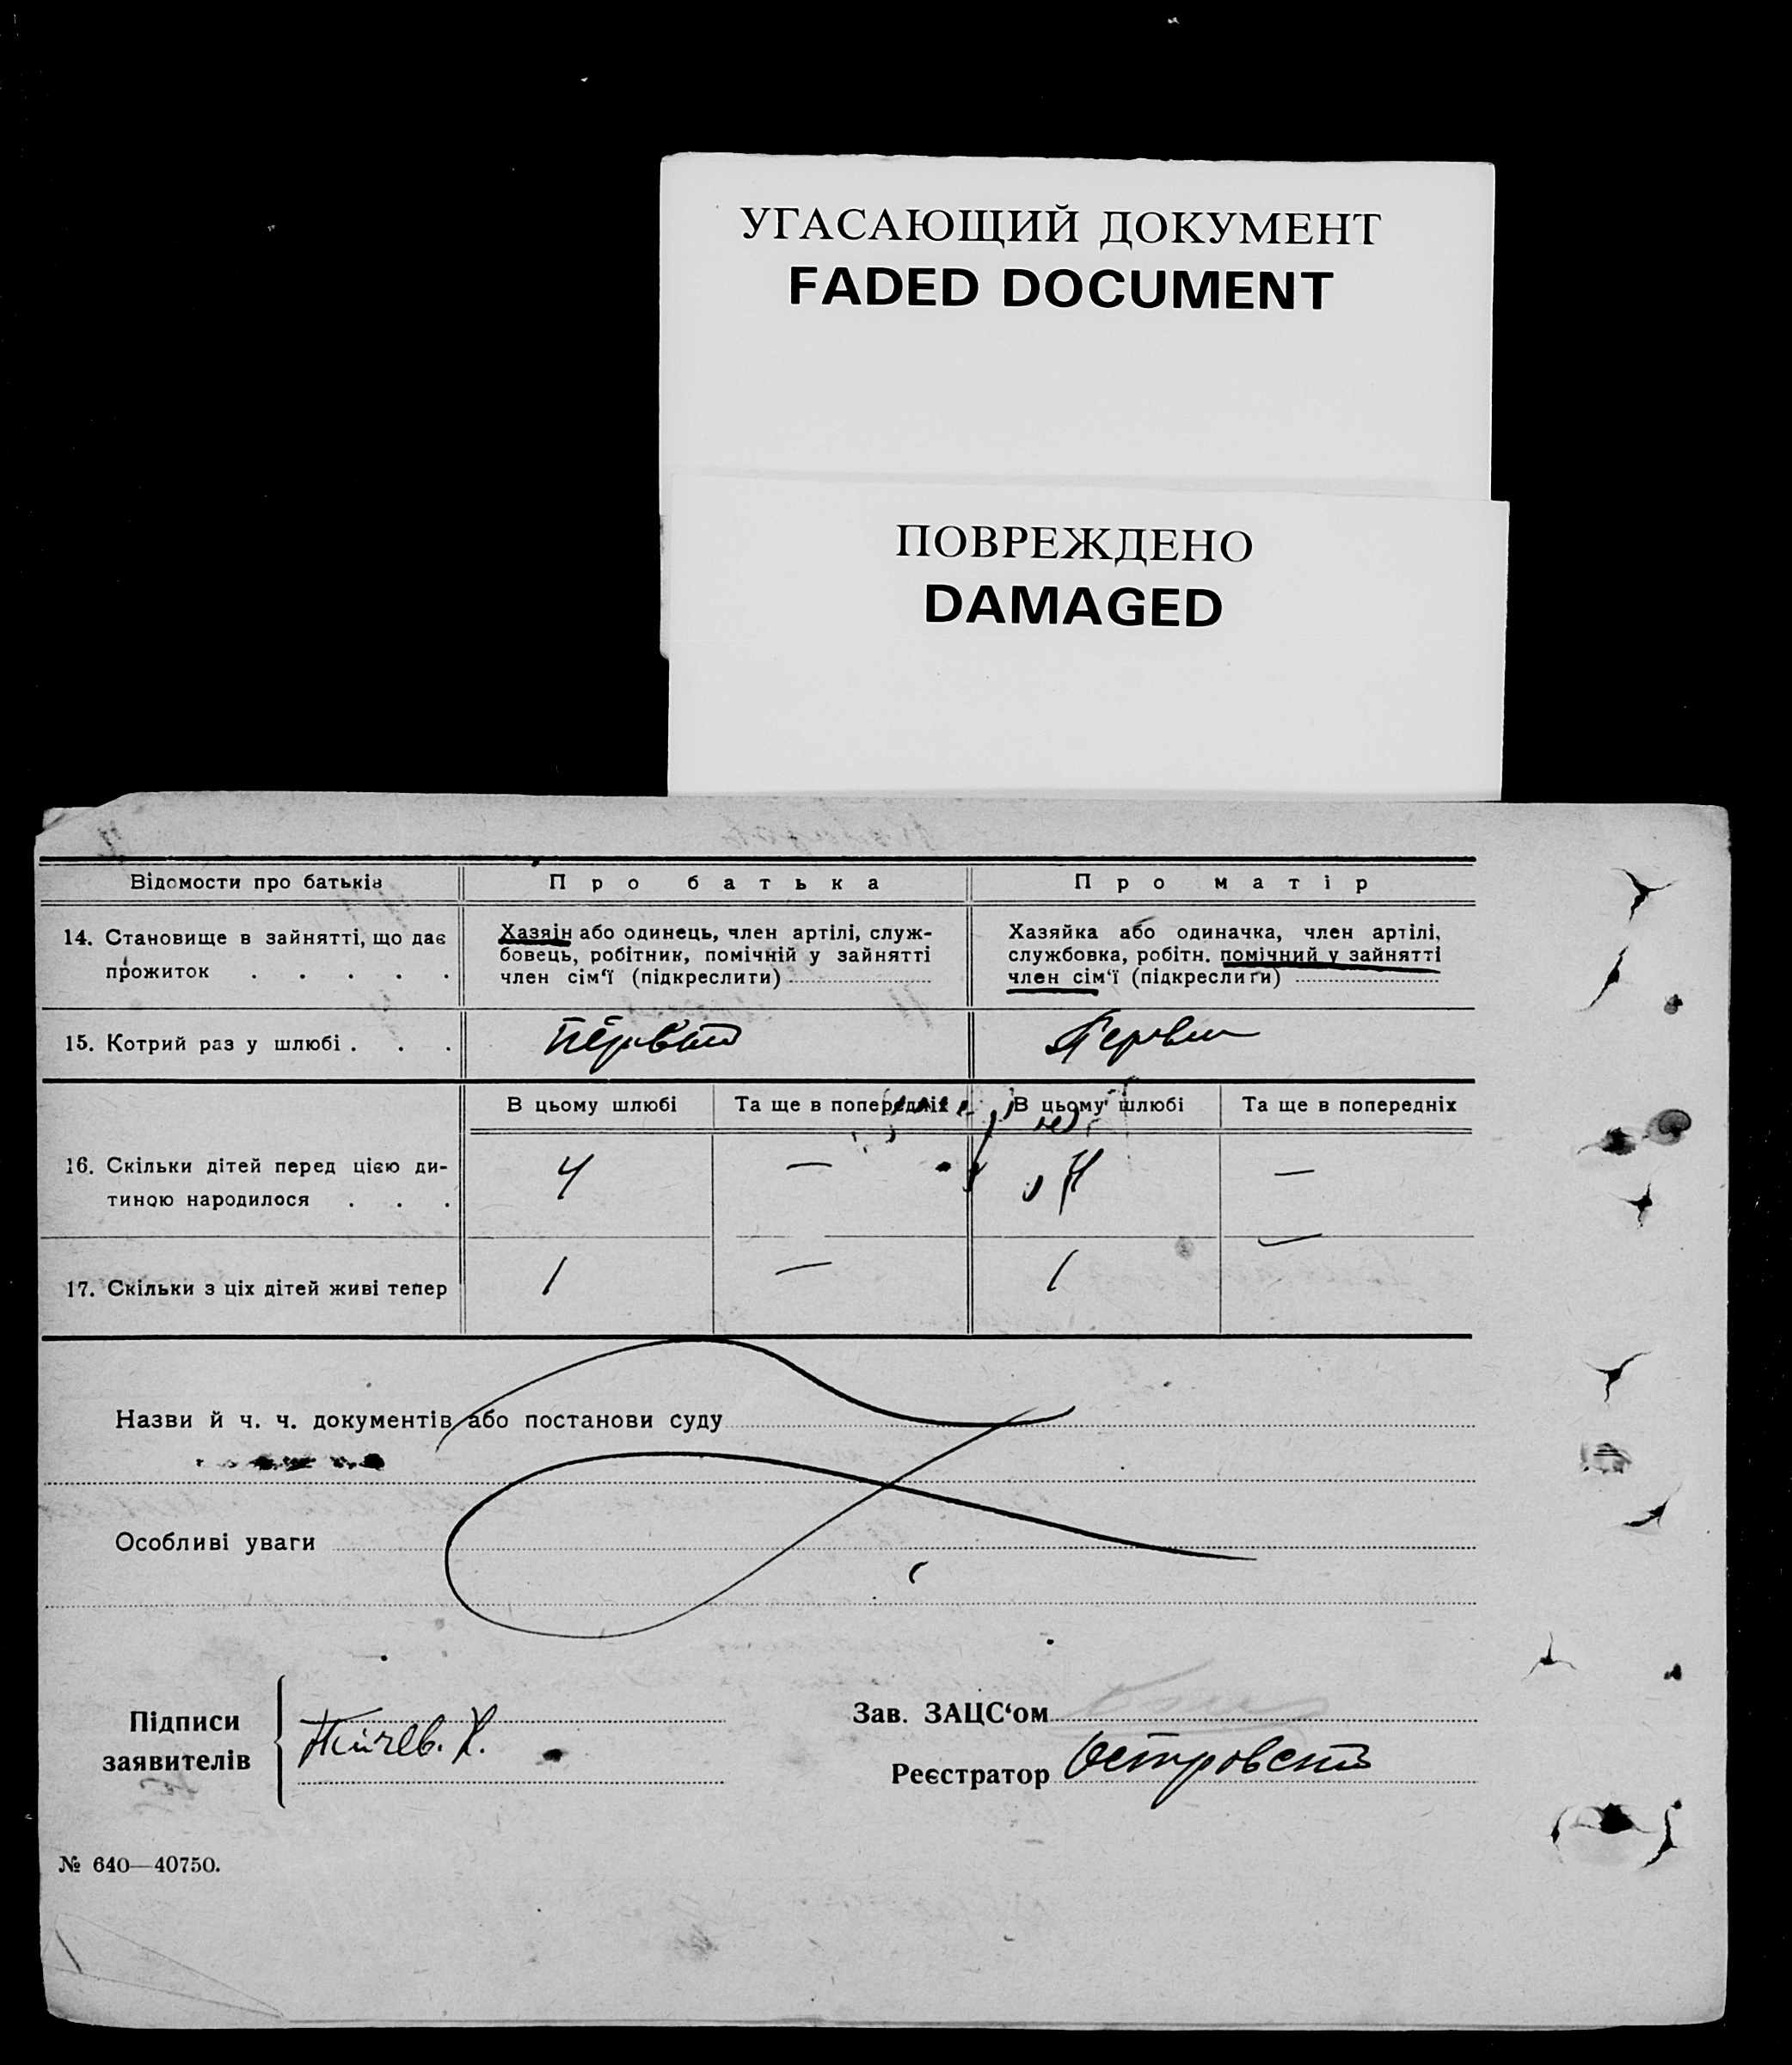 УГАСАЮЩИЙ ДОКУМЕНТ
FADED DOCUMENT
ПОВРЕЖДЕНО
DAMAGED
Відомости про батьків
Про батька
Про матір
14. Становище в зайнятті, що дає
прожиток . . . . .
Хазяін або одинець, член артілі, служ-
бовець, робітник, помічній у зайнятті
член сім‘ї (підкреслити)
Хазяйка або одиначка, член артілі,
службовка, робітн. помічний у зайнятті
член сім‘ї (підкреслити)
15. Котрий раз у шлюбі . . .
Первый
Первый
В цьому шлюбі
Та ще в попередніх
В цьому шлюбі
Та ще в попередніх
16. Скільки дітей перед цією ди-
тиною народилося . . .
4
—
4
—
17. Скільки з ціх дітей живі тепер
1
—
1
—
Назви й ч. ч. документів або постанови суду
Особливі уваги
Підписи
заявителів
Зав. ЗАЦС‘ом
Реєстратор Островский
№ 640—40750.